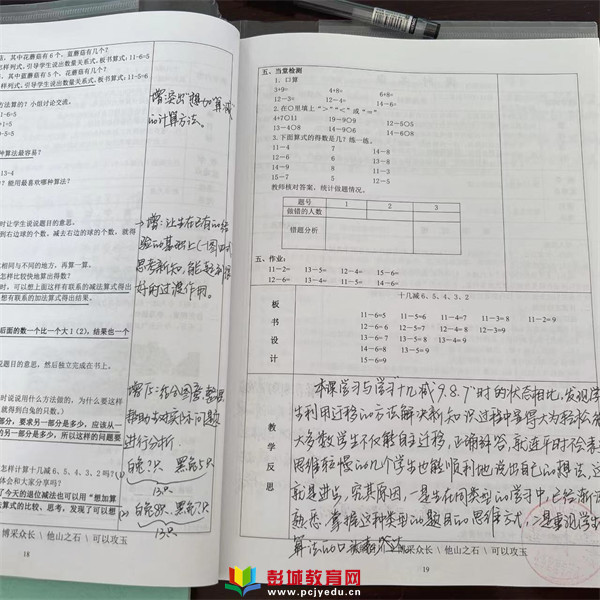 括，其中花蘑菇有6个，蓝蘑菇有几个？
怎样列式，引导学生说出数量关系式，板书算式：11-6=5
，其中蓝蘑菇有5个，花蘑菇有几个？
样列式，引导学生说出数量关系式，板书算式：11-5=6
方法算的？小组讨论交流。
1-6=5
+1=5
0-5=5
种算法最容易？
13-4
？能用最喜欢哪种算法？
时让学生说说题目的意思。
到右边球的个数，减去右边的球的个数，就得
相同与不同的地方，再算一算。
怎样比较快地算出得数？
时，可以想上面这样有联系的减法算式得出
想有联系的加法算式得出结果。
后面的数一个比一个大1（2），结果也一个
说题目的意思，然后独立完成在书上。
时说说用什么方法做的，为什么要这样
就得到白兔的只数。）
部分，要求另一部分是多少，应该从一
的另一部分是多少，所以这样的问题要
怎样计算十几减6、5、4、3、2吗？
体会和大家分享吗？
了今天的退位减法也可以用“想加算
法算式的比较、思考，发现了可以想
增：突出“想加算减”
的计算方法。
→增：让生在已有的经
验的基础上(一图四式)
思考新知，能起到很
好的过渡作用。
增：
帮助生对实际问题
进行分析.
白兔？只 黑兔5只
13只
白兔8只. 黑兔？只
13只
博采众长 \ 他山之石 \ 可以攻玉
18
五、当堂检测
1. 口算
3+9= 4+8= 6+8=
12-3= 12-4= 14-6=
2.在○里填上“＞”“＜”或“＝”
4+7○11 19-9○9 12-5○5
13-4○8 14-9○6 14-6○8
3.下面算式的得数是几？练一练。
11-4 7 14-8
12-6 6 13-8
14-9 8 11-3
15-7 5 12-5
教师核对答案，统计做题情况。
题号 1 2 3
做错的人数
错题分析
五、作业：
11-2= 13-5= 12-4= 15-6=
12-6= 13-4= 11-5= 14-6=
板书设计
十几减6、5、4、3、2
11-6=5 11-5=6 11-4=7 11-3=8 11-2=9
12-6=6 12-5=7 12-4=8 12-3=9
13-6=7 13-5=8 13-4=9
14-6=8 14-5=9
15-6=9
教学反思
本课学习与学习“十几减9.8.7”时的状态相比，发现学
生利用迁移的方法解决新知识过程中显得大为轻松
大多数学生不仅能自主迁移，正确解答，就连平时不会
思维较慢的几个学生也能顺利地说出自己的想法，这
就是进步，究其原因，一是生在同类型的学习中，已经渐
熟悉 掌握这种类型的题目的思维方式，二是重视学生
算法的口
博采众长 \ 他山之石 \ 可以攻玉
19
彭城教育网
www.pcjyedu.cn